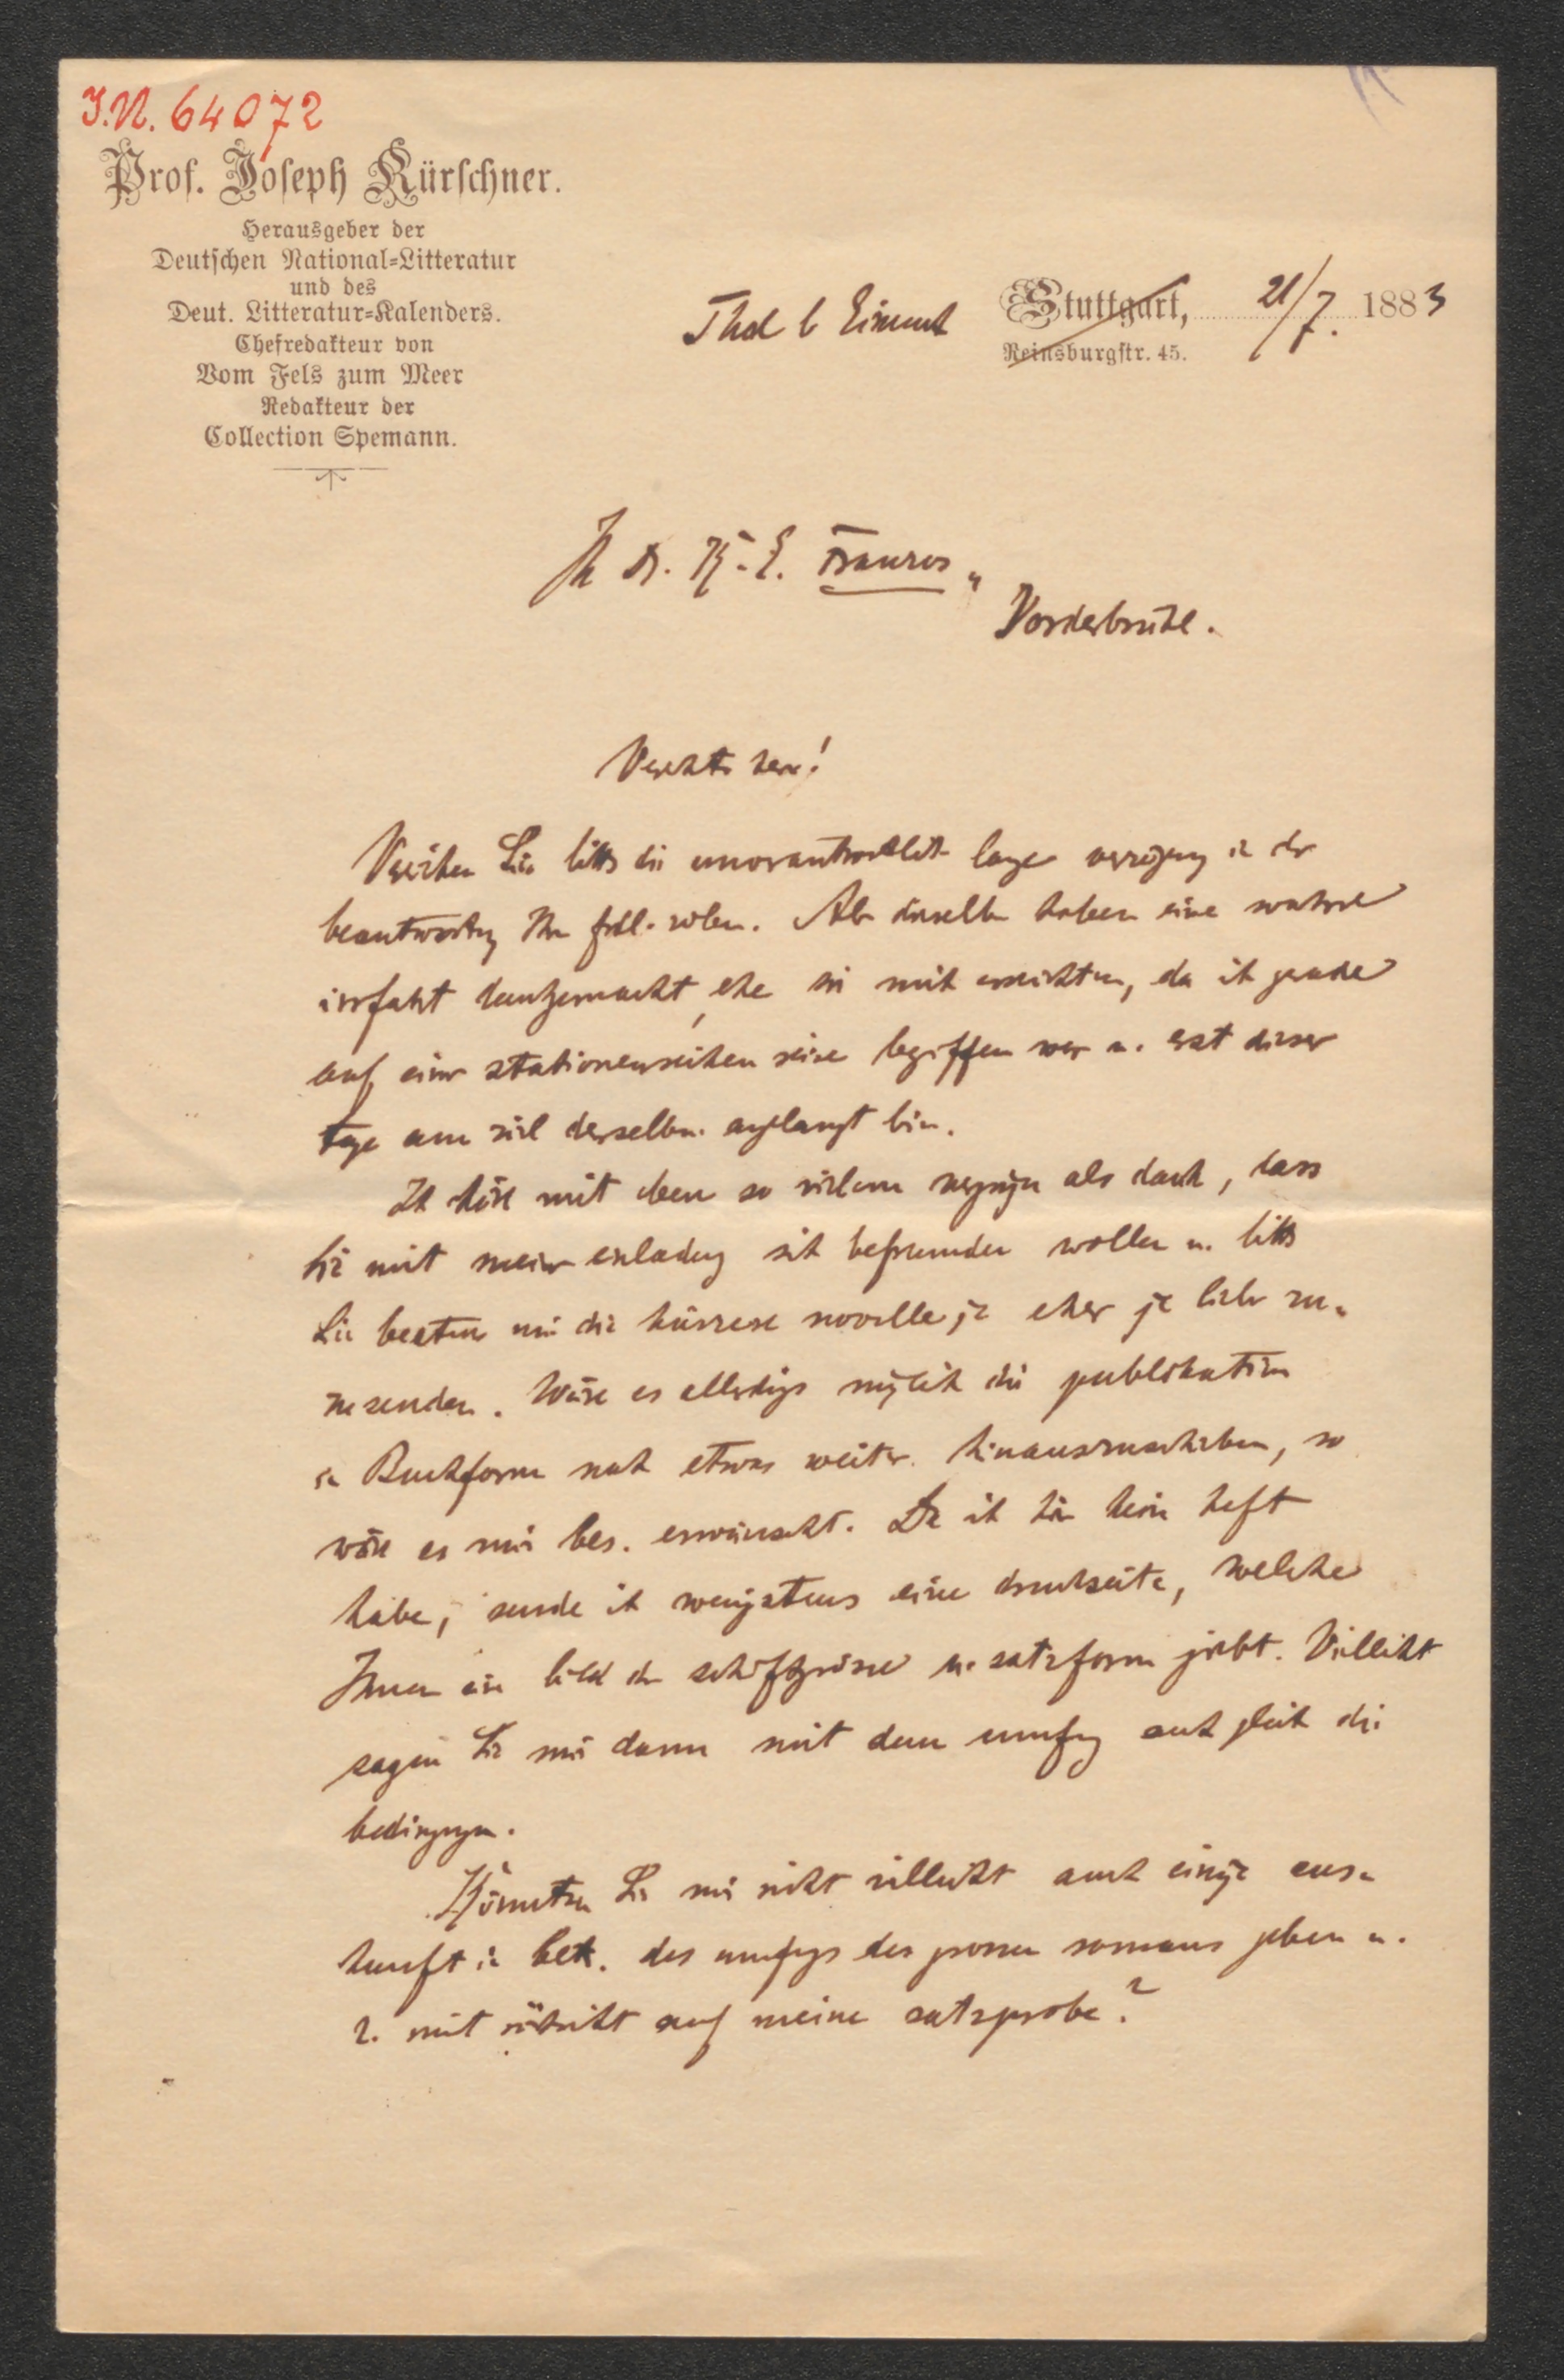 I.N. 64072
Prof. Joseph Kürschner.
Herausgeber der
Deutschen National-Litteratur
und des
Deut. Litteratur-Kalenders.
Chefredakteur von
Vom Fels zum Meer
Redakteur der
Collection Spemann.
Thal b Eisenach Stuttgart, 21/7. 1883
Reinsburgstr. 45.
H Dr. K. E. Franzos,
Vorderbrühl.
Verehrter herr!
Verzeihen Sie bitte die unverantwortlich lange verzögerung in der
beantwortung Ihrer frdl. zeilen. Aber dieselben haben eine wahre
irrfahrt durchgemacht, ehe sie mich erreichten, da ich gerade
auf einer stationenreichen reise begriffen war u. erst dieser
tage am ziel derselben angelangt bin.
Ich höre mit eben so vielem vergnügen als dank, dass
Sie mit meiner einladung sich befreunden wollen u. bitte
Sie bestens mir die kürzere novelle je eher je lieber zu-
zusenden. Wäre es allerdings möglich die publikation
in Buchform noch etwas weiter hinauszuschieben, so
wäre es mir bes. erwünscht. Da ich hier kein heft
habe, sende ich wenigstens eine druckseite, welche
Ihnen ein bild der schriftgrösse u. satzform giebt. Vielleicht
sagen Sie mir dann mit dem umfang auch gleich die
bedingungen.
Könnten Sie mir nicht vielleicht auch einige aus-
kunft in betr. des umfangs des grossen romans geben u.
z. mit rücksicht auf meine satzprobe?